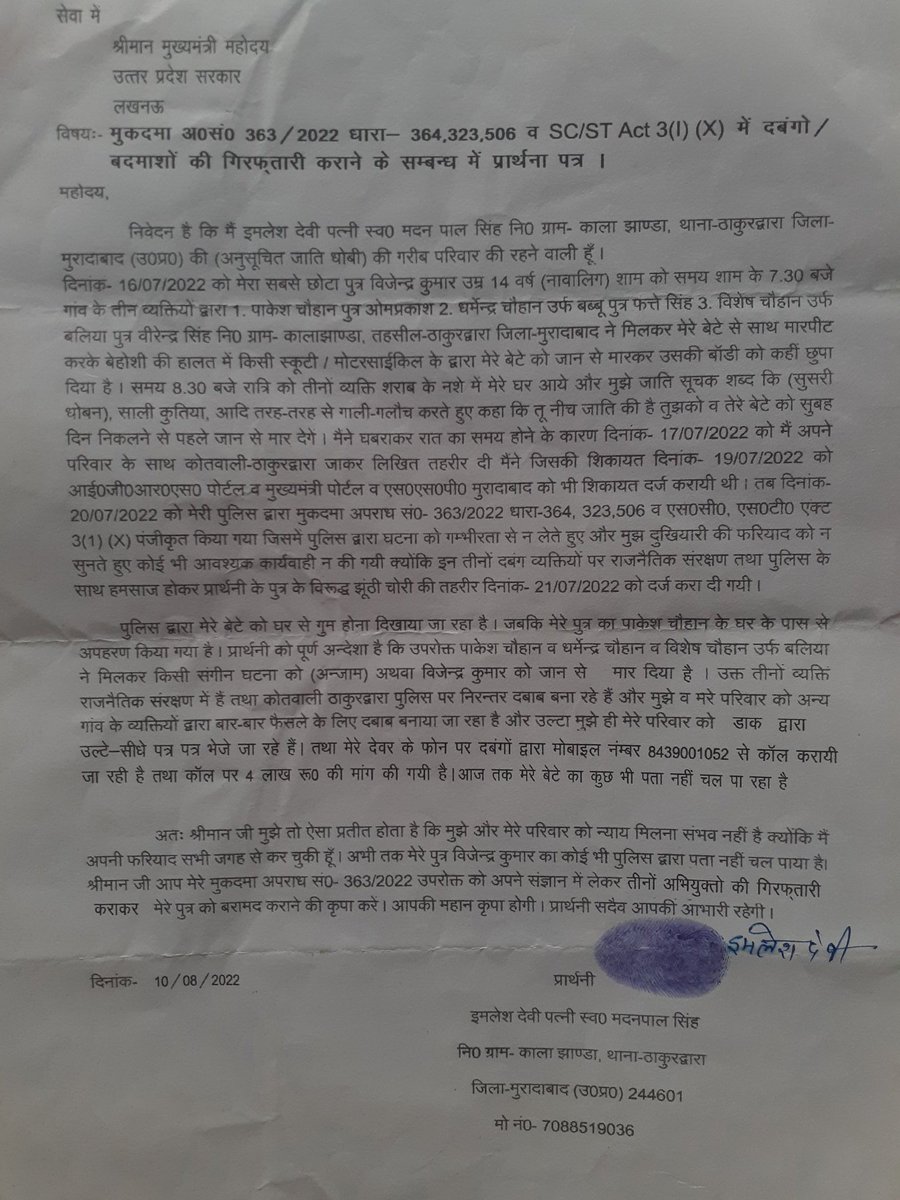 सेवा में
श्रीमान मुख्यमंत्री महोदय
उत्तर प्रदेश सरकार
लखनऊ
विषयः- मुकदमा अ0सं0 363/2022 धारा– 364,323,506 व SC/ST Act 3(I) (X) में दबंगो/
बदमाशों की गिरफ्तारी कराने के सम्बन्ध में प्रार्थना पत्र ।
महोदय,
निवेदन है कि मैं इमलेश देवी पत्नी स्व0 मदन पाल सिंह नि0 ग्राम- काला झाण्डा, थाना-ठाकुरद्वारा जिला-
मुरादाबाद (उ0प्र0) की (अनुसूचित जाति धोबी) की गरीब परिवार की रहने वाली हूँ ।
दिनांक- 16/07/2022 को मेरा सबसे छोटा पुत्र विजेन्द्र कुमार उम्र 14 वर्ष (नावालिग) शाम को समय शाम के 7.30 बजे
गांव के तीन व्यक्तियों द्वारा 1. पाकेश चौहान पुत्र ओमप्रकाश 2. धर्मेन्द्र चौहान उर्फ बब्बू पुत्र फत्ते सिंह 3. विशेष चौहान उर्फ
बलिया पुत्र वीरेन्द्र सिंह नि0 ग्राम- कालाझाण्डा, तहसील-ठाकुरद्वारा जिला-मुरादाबाद ने मिलकर मेरे बेटे से साथ मारपीट
करके बेहोशी की हालत में किसी स्कूटी / मोटरसाईकिल के द्वारा मेरे बेटे को जान से मारकर उसकी बॉडी को कहीं छुपा
दिया है । समय 8.30 बजे रात्रि को तीनों व्यक्ति शराब के नशे में मेरे घर आये और मुझे जाति सूचक शब्द कि (सुसरी
धोबन), साली कुतिया, आदि तरह-तरह से गाली-गलौच करते हुए कहा कि तू नीच जाति की है तुझको व तेरे बेटे को सुबह
दिन निकलने से पहले जान से मार देगें । मैने घबराकर रात का समय होने के कारण दिनांक- 17/07/2022 को मैं अपने
परिवार के साथ कोतवाली-ठाकुरद्वारा जाकर लिखित तहरीर दी मैंने जिसकी शिकायत दिनांक- 19/07/2022 को
आई0जी0आर0एस0 पोर्टल व मुख्यमंत्री पोर्टल व एस0एस0पी0 मुरादाबाद को भी शिकायत दर्ज करायी थी । तब दिनांक-
20/07/2022 को मेरी पुलिस द्वारा मुकदमा अपराध सं0- 363/2022 धारा-364, 323,506 व एस0सी0, एस0टी0 एक्ट
3(1) (X) पंजीकृत किया गया जिसमें पुलिस द्वारा घटना को गम्भीरता से न लेते हुए और मुझ दुखियारी की फरियाद को न
सुनते हुए कोई भी आवश्यक कार्यवाही न की गयी क्योंकि इन तीनों दबंग व्यक्तियों पर राजनैतिक संरक्षण तथा पुलिस के
साथ हमसाज होकर प्रार्थनी के पुत्र के विरूद्ध झूंठी चोरी की तहरीर दिनांक- 21/07/2022 को दर्ज करा दी गयी ।
पुलिस द्वारा मेरे बेटे को घर से गुम होना दिखाया जा रहा है । जबकि मेरे पुत्र का पाकेश चौहान के घर के पास से
अपहरण किया गया है । प्रार्थनी को पूर्ण अन्देशा है कि उपरोक्त पाकेश चौहान व धर्मेन्द्र चौहान व विशेष चौहान उर्फ बलिया
ने मिलकर किसी संगीन घटना को (अन्जाम) अथवा विजेन्द्र कुमार को जान से मार दिया है । उक्त तीनों व्यक्ति
राजनैतिक संरक्षण में हैं तथा कोतवाली ठाकुरद्वारा पुलिस पर निरन्तर दबाब बना रहे हैं और मुझे व मरे परिवार को अन्य
गांव के व्यक्तियों द्वारा बार-बार फैसले के लिए दबाब बनाया जा रहा है और उल्टा मुझे ही मेरे परिवार को डाक द्वारा
उल्टे–सीधे पत्र पत्र भेजे जा रहे हैं। तथा मेरे देवर के फोन पर दबंगों द्वारा मोबाइल नंम्बर 8439001052 से कॉल करायी
जा रही है तथा कॉल पर 4 लाख रू0 की मांग की गयी है।आज तक मेरे बेटे का कुछ भी पता नहीं चल पा रहा है
अतः श्रीमान जी मुझे तो ऐसा प्रतीत होता है कि मुझे और मेरे परिवार को न्याय मिलना संभव नहीं है क्योंकि मैं
अपनी फरियाद सभी जगह से कर चुकी हूँ। अभी तक मेरे पुत्र विजेन्द्र कुमार का कोई भी पुलिस द्वारा पता नहीं चल पाया है।
श्रीमान जी आप मेरे मुकदमा अपराध सं0- 363/2022 उपरोक्त को अपने संज्ञान में लेकर तीनों अभियुक्तो की गिरफ्तारी
कराकर मेरे पुत्र को बरामद कराने की कृपा करें । आपकी महान कृपा होगी । प्रार्थनी सदैव आपकीं आभारी रहेगी ।
इमलेश देवी
दिनांक- 10/08/2022 प्रार्थनी
इमलेश देवी पत्नी स्व0 मदनपाल सिंह
नि0 ग्राम- काला झाण्डा, थाना-ठाकुरद्वारा
जिला-मुरादाबाद (उ0प्र0) 244601
मो नं0- 7088519036